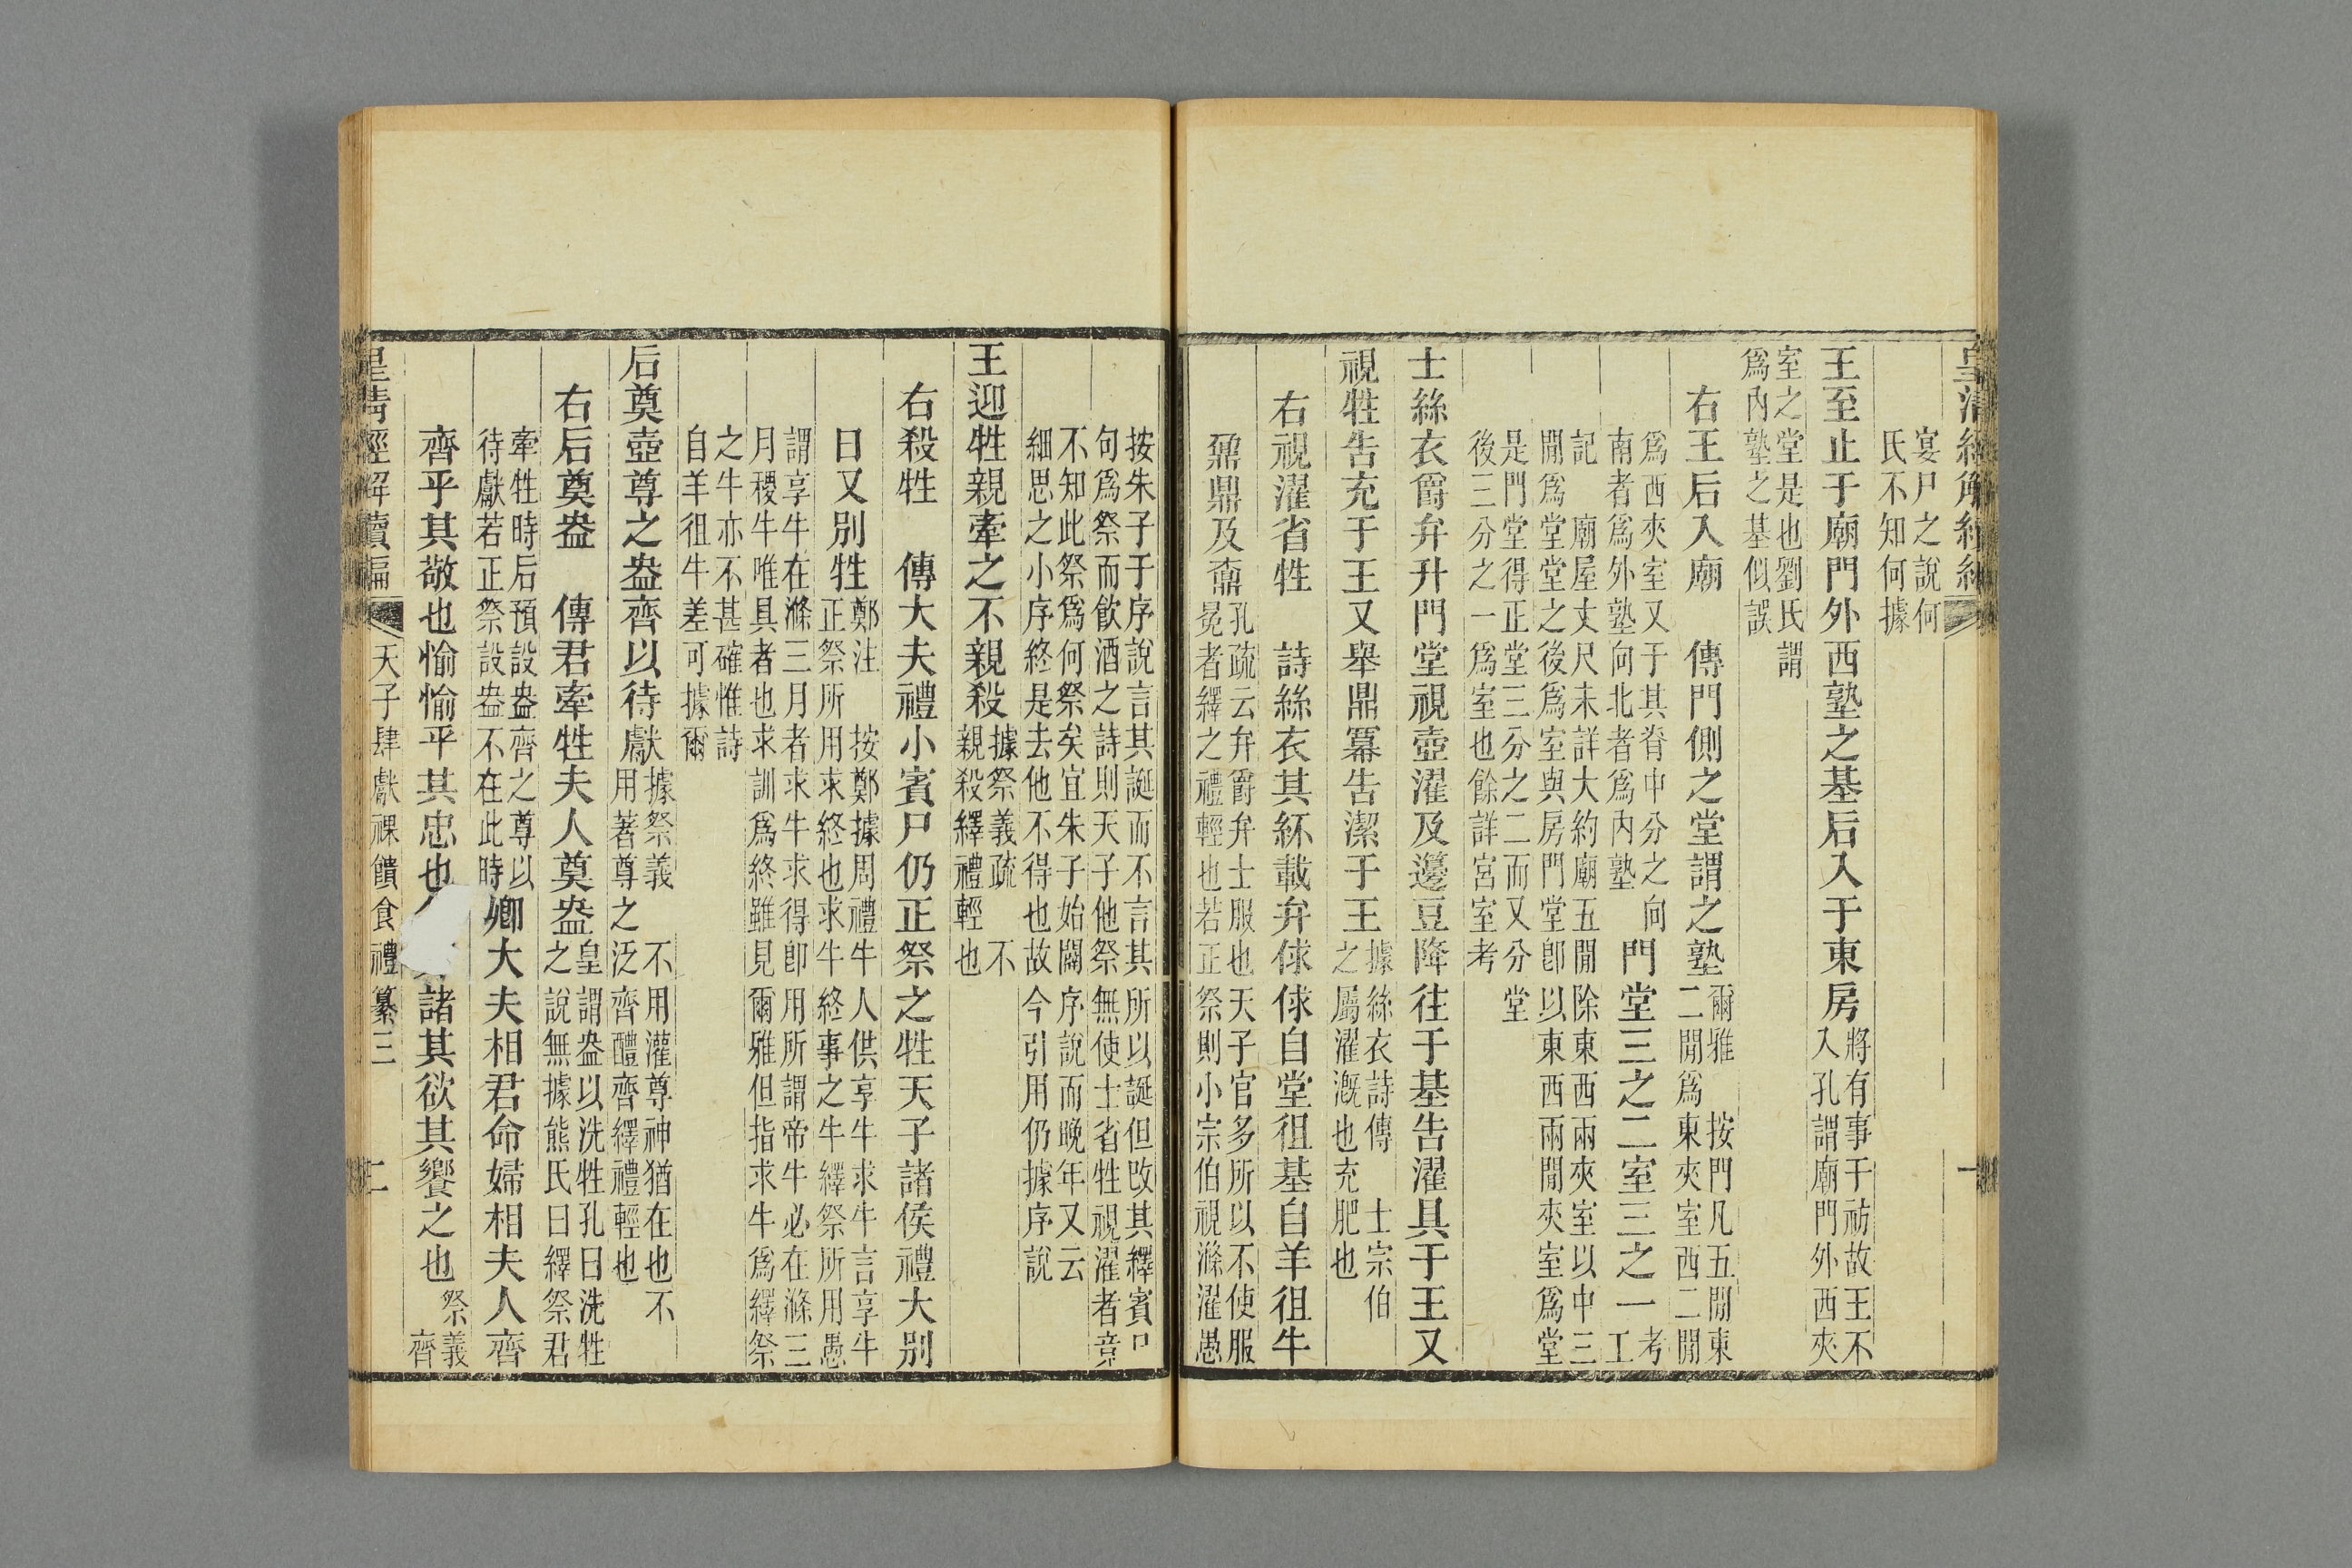 宴尸之說何
氏不知何據
王至止于廟門外西塾之基后入于東房將有事于祊故王不
入孔謂廟門外西夾
室之堂是也劉氏謂
爲內塾之基似誤
右王后入廟　傳門側之堂謂之塾爾雅　按門凡五閒東
二閒爲東夾室西二閒
爲西夾室又于其脊中分之向
南者爲外塾向北者爲內塾
門堂三之二室三之一考
工
記　廟屋丈尺未詳大約廟五閒除東西兩夾室以中三
閒爲堂堂之後爲室與房門堂卽以東西兩閒夾室爲堂
是門堂得正堂三分之二而又分堂
後三分之一爲室也餘詳宮室考
士絲衣爵弁升門堂視壺濯及籩豆降往于基告濯具于王又
視牲告充于王又舉鼎冪告潔于王據絲衣詩傳　士宗伯
之屬濯漑也充肥也
右視濯省牲　詩絲衣其紑載弁俅俅自堂徂基自羊徂牛
鼐鼎及鼒孔疏云弁爵弁士服也天子官多所以不使服
冕者繹之禮輕也若正祭則小宗伯視滌濯愚
按朱子于序說言其誕而不言其所以誕但改其繹賓尸
句爲祭而飲酒之詩則天子他祭無使士省牲視濯者竟
不知此祭爲何祭矣宜朱子始闢序說而晚年又云
細思之小序終是去他不得也故今引用仍據序說
王迎牲親牽之不親殺據祭義疏　不
親殺繹禮輕也
右殺牲　傳大夫禮小賓尸仍正祭之牲天子諸侯禮大别
日又別牲鄭注　按鄭據周禮牛人供享牛求牛言享牛
正祭所用求終也求牛終事之牛繹祭所用愚
謂享牛在滌三月者求牛求得卽用所謂帝牛必在滌三
月稷牛唯具者也求訓爲終雖見爾雅但指求牛爲繹祭
之牛亦不甚確惟詩
自羊徂牛差可據爾
后奠壺尊之盎齊以待獻據祭義　不用灌尊神猶在也不
用著尊之泛齊醴齊繹禮輕也
右后奠盎　傳君牽牲夫人奠盎皇謂盎以洗牲孔曰洗牲
之說無據熊氏曰繹祭君
牽牲時后預設盎齊之尊以
待獻若正祭設盎不在此時
卿大夫相君命婦相夫人齊
齊乎其敬也愉愉乎其忠也諸其欲其饗之也祭義
齊
皇清經解續編　天子肆獻祼饋食禮纂三　二